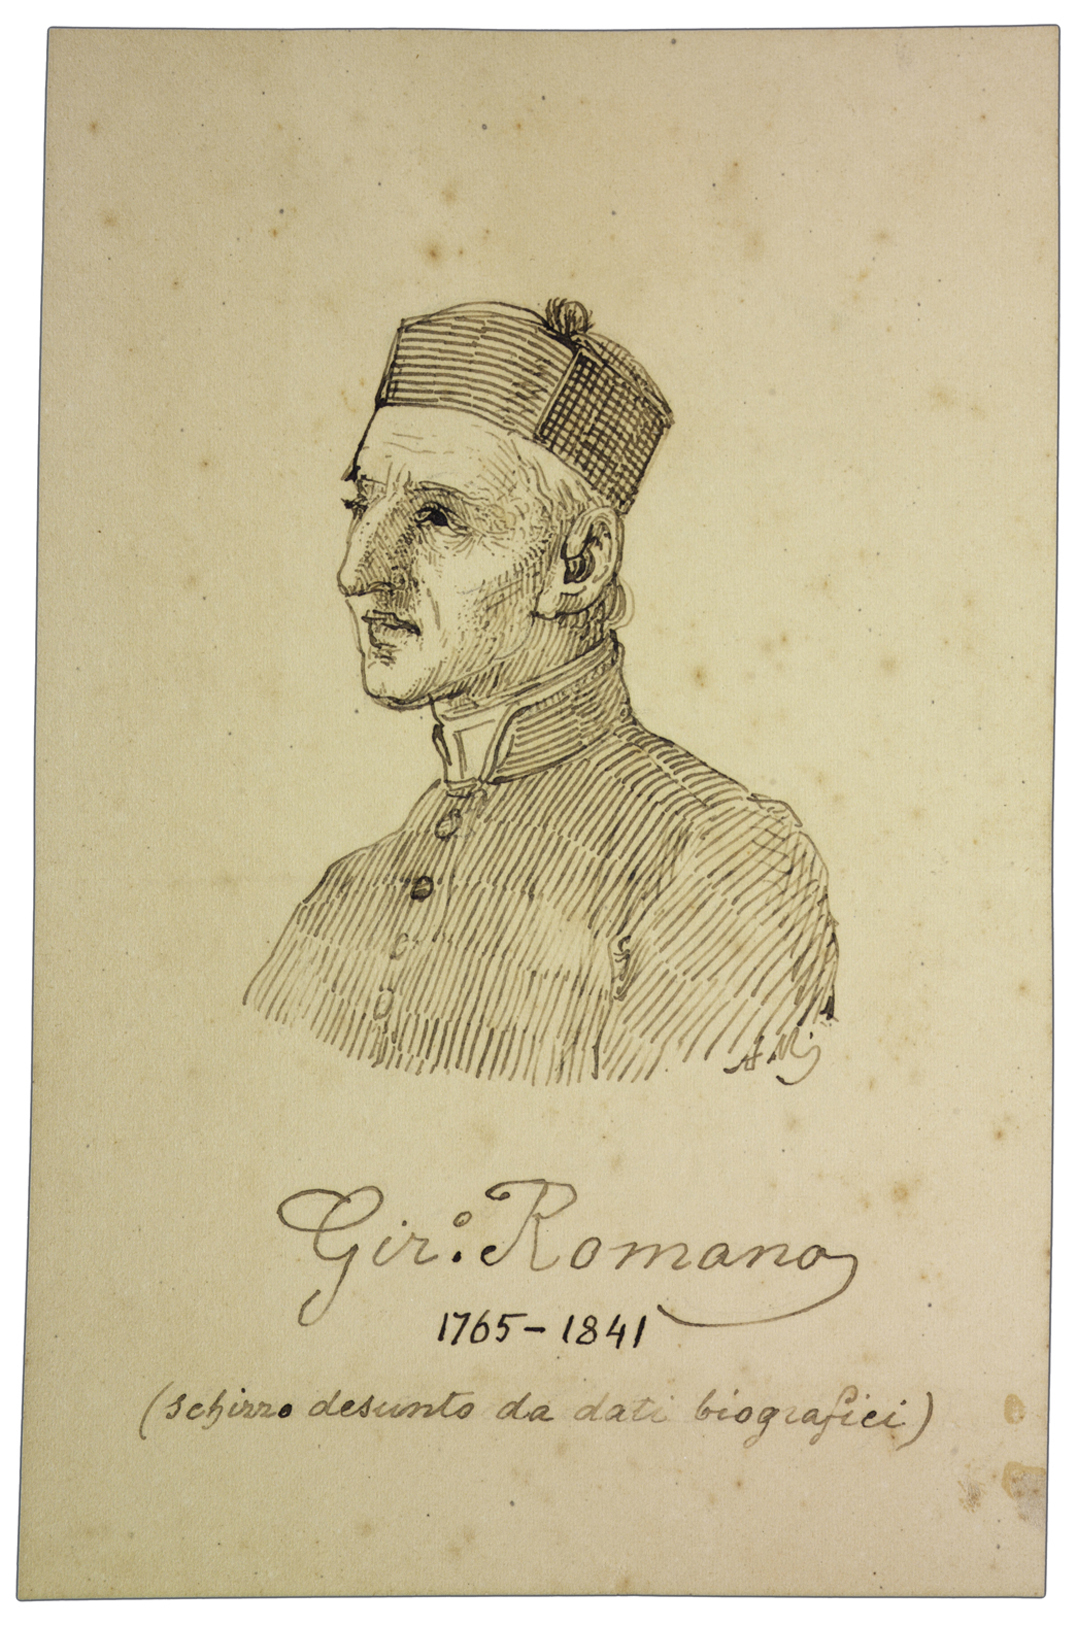 Gir.º Romano
1765-1841
(schizzo desunto da dati biografici)